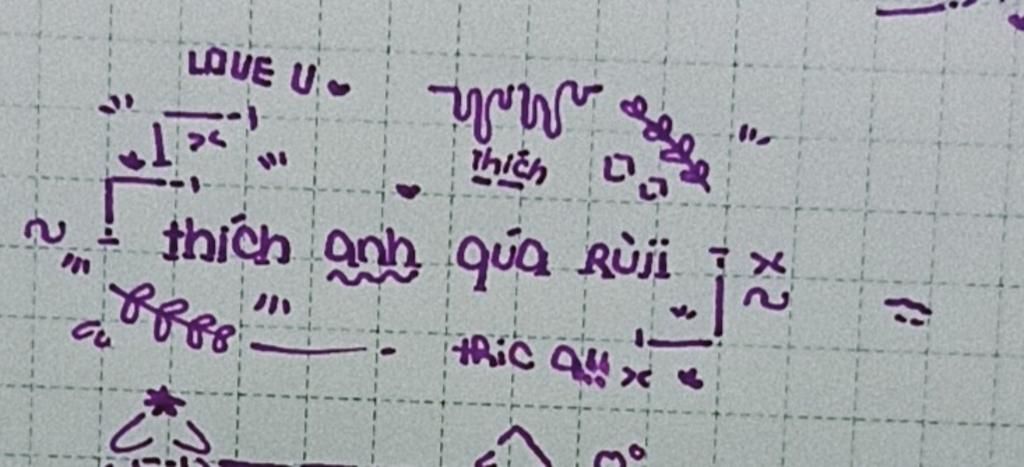 LOVE U
thích
thích anh qúa Rùji
thic a!!